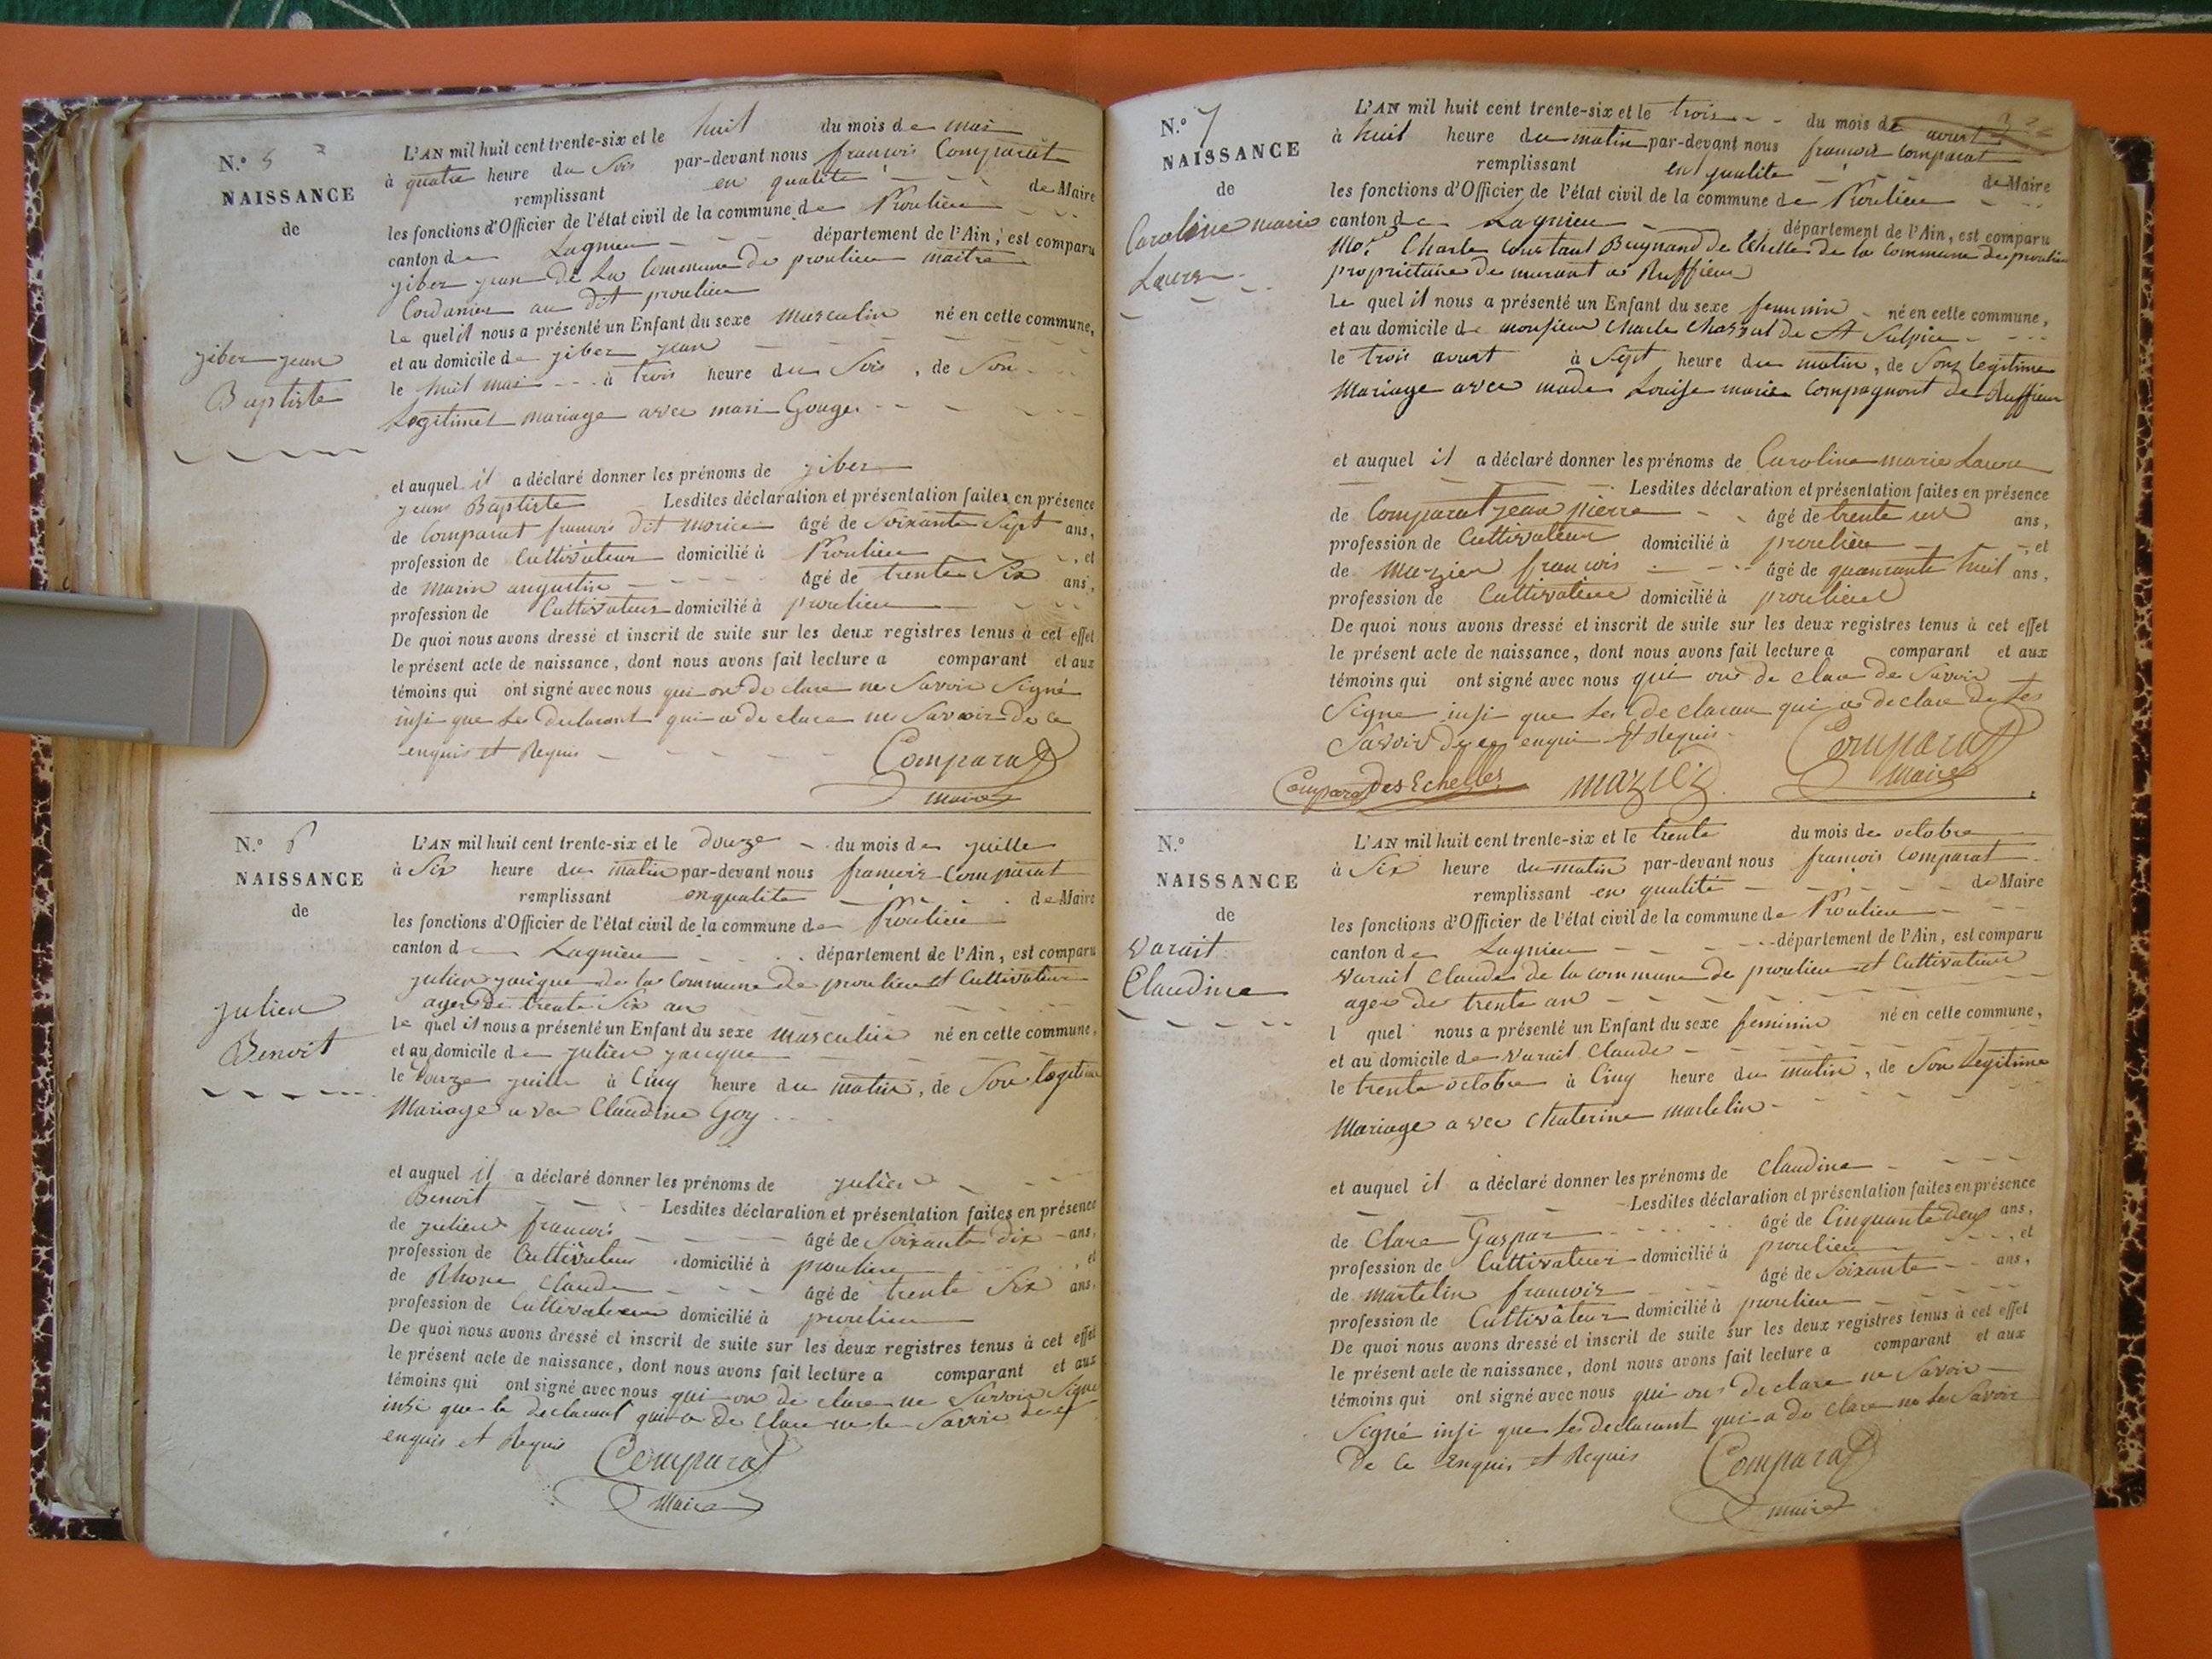 N.º 5
NAISSANCE
de
giber jean
Baptiste
L'AN mil huit cent trente-six et le huit du mois de mai
à quatre heure du Soir par-devant nous francois Comparat
remplissant en qualité de Maire
les fonctions d'Officier de l'état civil de la commune de Proulieu
canton de Lagnieu département de l'Ain, est comparu
giber jean de La Commune de proulieu maitre
Cordanier au dit proulieu
Le quel il nous a présenté un Enfant du sexe masculin né en cette commune,
et au domicile de giber jean
le huit mai à trois heure du Soir, de Son
Legitimet mariage avec mari Gouge
et auquel il a déclaré donner les prénoms de giber
jean Baptiste Lesdites déclaration et présentation faites en présence
de Comparat francois dit morice âgé de Soixante Sept ans,
profession de Cultivateur domicilié à Proulieu, et
de marin augustin âgé de trente Six ans,
profession de Cultivateur domicilié à proulieu
De quoi nous avons dressé et inscrit de suite sur les deux registres tenus à cet effet
le présent acte de naissance, dont nous avons fait lecture a comparant et aux
témoins qui ont signé avec nous qui on de clare ne Savoir Signé
insi que Les declarant qui a de clare ne Savoir de ce
enquis et Requis
Comparat
maire
N.º 6
NAISSANCE
de
julien
Benoit
L'AN mil huit cent trente-six et le Douze du mois de juille
à Six heure du matin par-devant nous francois Comparat
remplissant en qualite de Maire
les fonctions d'Officier de l'état civil de la commune de Proulieu
canton de Lagnieu département de l'Ain, est comparu
julien jacque de la Commune de proulieu et Cultivateur
agé de trente Six an
le quel il nous a présenté un Enfant du sexe masculin né en cette commune,
et au domicile de julien jacque
le Douze juille à Cinq heure du matin, de Son legitime
Mariage a vec Claudine Goy
et auquel il a déclaré donner les prénoms de julien
Benoit Lesdites déclaration et présentation faites en présence
de julien francois âgé de Soixante dix ans,
profession de Cultivateur domicilié à proulieu et
de Rhone Claude âgé de trente Six ans,
profession de Cultivateur domicilié à proulieu
De quoi nous avons dressé et inscrit de suite sur les deux registres tenus à cet effet
le présent acte de naissance, dont nous avons fait lecture a comparant et aux
témoins qui ont signé avec nous qui on de clare ne Savoir Signé
insi que le declarant qui a de clare ne le Savoir de ce
enquis et Requis
Comparat
Maire
N.º 7
NAISSANCE
de
Caroline marie
Laure
L'AN mil huit cent trente-six et le trois du mois de avust
à huit heure du matin par-devant nous francois Comparat
remplissant en qualite de Maire
les fonctions d'Officier de l'état civil de la commune de Proulieu
canton de Lagnieu département de l'Ain, est comparu
Mo.r Charle Constant Buynand de Echelles de la Commune de proulieu
proprietaire demeurant a Ruffieu
Le quel il nous a présenté un Enfant du sexe feminin né en cette commune,
et au domicile de monsieur Charle Chossat de St Sulpice
le trois avust à Sept heure du matin, de Son legitime
Mariage avec made Louise marie Compagnont de Ruffieu
et auquel il a déclaré donner les prénoms de Caroline marie Laure
Lesdites déclaration et présentation faites en présence
de Comparat jean pierre âgé de trente un ans,
profession de Cultivateur domicilié à proulieu, et
de Mazier francois âgé de quarante huit ans,
profession de Cultivateur domicilié à proulieu
De quoi nous avons dressé et inscrit de suite sur les deux registres tenus à cet effet
le présent acte de naissance, dont nous avons fait lecture a comparant et aux
témoins qui ont signé avec nous qui on de clare de Savoir
Signe insi que Les declaran qui a declare de Les
Savoir de ce enqui Et Requis
Comparat des Echelles maziez Comparat
maire
N.º
NAISSANCE
de
Varait
Claudine
L'AN mil huit cent trente-six et le trente du mois de octobre
à Six heure du matin par-devant nous francois Comparat
remplissant en qualité de Maire
les fonctions d'Officier de l'état civil de la commune de Proulieu
canton de Lagnieu département de l'Ain, est comparu
Varait Claude de la commune de proulieu et Cultivateur
agee de trente an
l quel nous a présenté un Enfant du sexe feminin né en cette commune,
et au domicile de Varait Claude
le trente octobre à Cinq heure du matin, de Son Legitime
Mariage a vec Chaterine martelin
et auquel il a déclaré donner les prénoms de Claudine
Lesdites déclaration et présentation faites en présence
de Clare Gaspar âgé de Cinquante deux ans,
profession de Cultivateur domicilié à proulieu, et
de martelin francois âgé de Soixante ans,
profession de Cultivateur domicilié à proulieu
De quoi nous avons dressé et inscrit de suite sur les deux registres tenus à cet effet
le présent acte de naissance, dont nous avons fait lecture a comparant et aux
témoins qui ont signé avec nous qui ons declare ne Savoir
Signé insi que Les declarant qui a de clare ne Les Savoir
De Ce Enquis et Requis
Comparat
maire